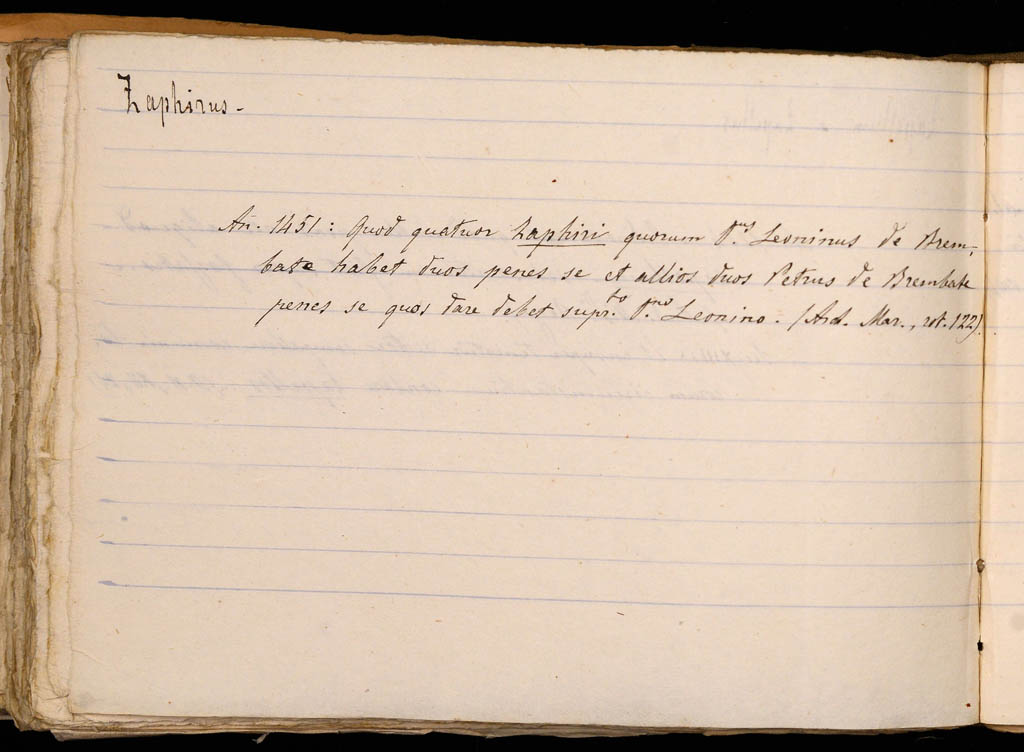 Zaphirus -
An. 1451: Quod quatuor zaphiri quorum D.nus Leoninus de Brem-
bate habet duos penes se et allios duos Petrus de Brembate
penes se quos dare debet supr.to D.no Leonino. (Ard. Mar., rot. 122).